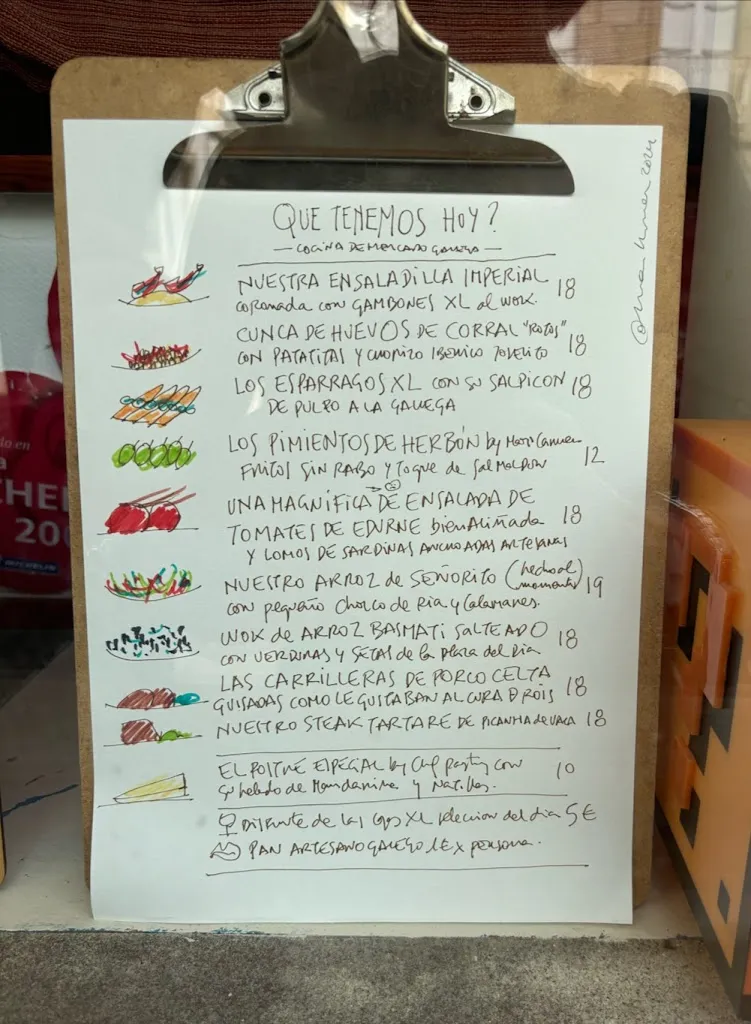 QUE TENEMOS HOY?
— COCINA DE MERCADO GALLEGA —
NUESTRA ENSALADILLA IMPERIAL
coronada con GAMBONES XL al wok. 18
CUNCA DE HUEVOS DE CORRAL "ROTOS"
CON PATATITAS Y CHORIZO IBERICO JOSELITO 18
LOS ESPARRAGOS XL CON SU SALPICON 18
DE PULPO A LA GALLEGA
LOS PIMIENTOS DE HERBÓN by Mari Carmen
FRITOS SIN RABO y toque de sal MALDON 12
UNA MAGNÍFICA DE ENSALADA DE
TOMATES DE EDURNE bien Aliñada 18
Y LOMOS DE SARDINAS ANCHOADAS ARTESANAS
NUESTRO ARROZ de SEÑORITO (hecho al momento) 19
con pequeño choco de Ria y Calamares.
WOK de ARROZ BASMATI SALTEADO 18
CON VERDURAS Y SETAS de la plaza del Dia
LAS CARRILLERAS DE PORCO CELTA
GUISADAS COMO LE GUSTABAN AL CURA D ROIS 18
NUESTRO STEAK TARTARE DE PICANHA de VACA 18
EL POSTRE ESPECIAL by Chef pastry con 10
su helado de Mandarina y Natillas.
DISFRUTE de las Cops XL selección del dia 5€
PAN ARTESANO GALLEGO 1€ x persona.
2024
do en
a
CHEL
200
MICHELIN